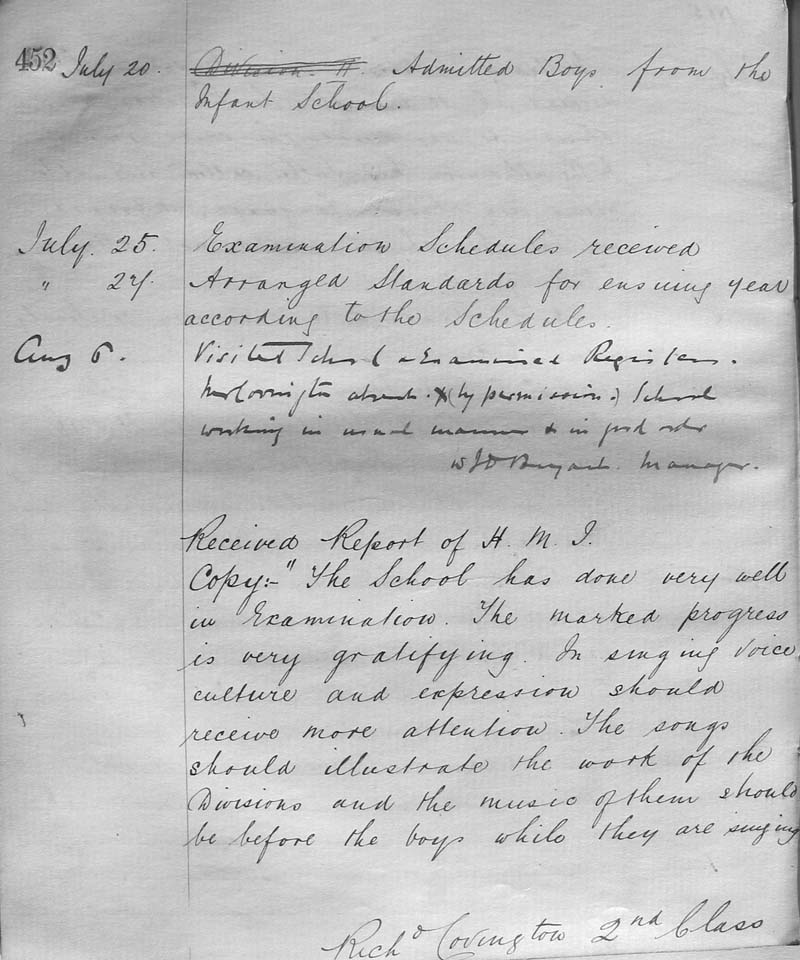 452 July 20. Division II. Admitted Boys from the
Infant School.
July. 25. Examination Schedules received
" 27. Arranged Standards for ensuing year
according to the Schedules.
Aug 6. Visited School & Examined Registers.
Mr Covington absent. (by permission.) School
working in usual manner & in good order
Manager.
Received Report of H. M. I.
Copy:- "The School has done very well
in Examination. The marked progress
is very gratifying. In singing voice
culture and expression should
receive more attention. The songs
should illustrate the work of the
Divisions and the music of them should
be before the boys while they are singing
Richd Covington 2nd Class